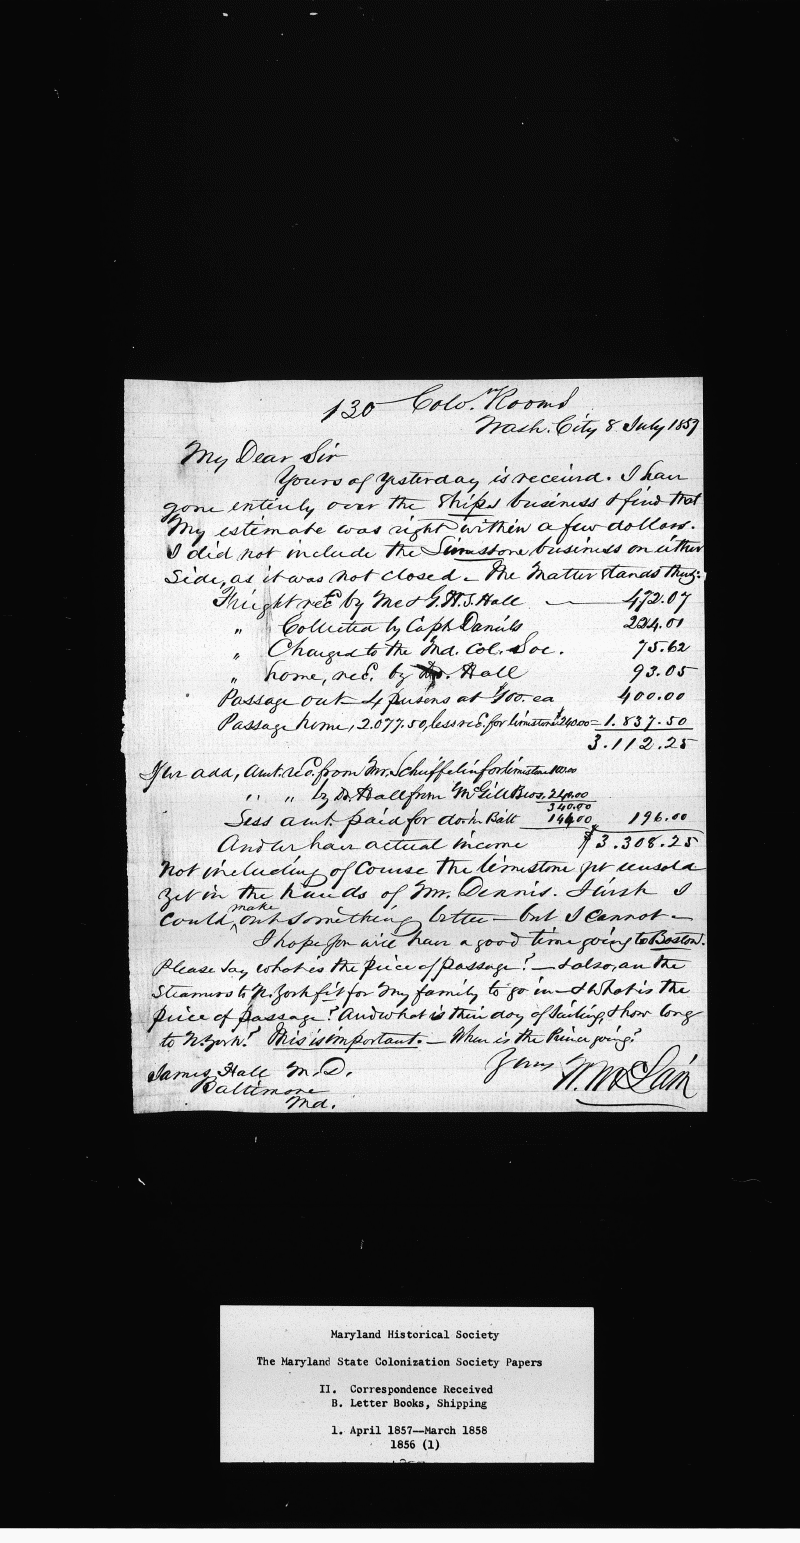 130 Colo.n Rooms
Wash. City 8 July 1857
My Dear Sir
Yours of yesterday is received. I have
gone entirely over the ships business & find that
My estimate was right within a few dollars.
I did not include the Limestone business on either
Side, as it was not closed - The Matter stands thus:
Freight recd by Me & G.H.S. Hall — 472.07
" Collected by Capt. Daniels 224.01
" Charged to the Md. Col. Soc. 75.62
" home, rec. by Dr. Hall 93.05
Passage out - 4 persons at $100. ea 400.00
Passage home, 2.077.50, less rec. for limestone $240.00 = 1.837.50
3.112.25
If we add, Amt. rec. from Mr. Schieffelin for limestone 100.00
" " by Dr. Hall from McGill Bros. 240.00
340.00
Less amt. paid for do. in Balt 144.00 196.00
And we have actual income $3.308.25
Not including of course the limestone yet unsold
yet in the hands of Mr. Dennis. I wish I
could make out something better - but I cannot -
I hope you will have a good time going to Boston.
Please say what is the price of passage? - & also, are the
Steamers to N. York fit for my family to go in - & what is the
price of passage? And what is their day of sailing, & how long
to N. York? This is important. - When is the Prince going?
Yours
W. McLain
James Hall M.D.
Baltimore
Md.
Maryland Historical Society
The Maryland State Colonization Society Papers
II. Correspondence Received
B. Letter Books, Shipping
1. April 1857--March 1858
1856 (1)